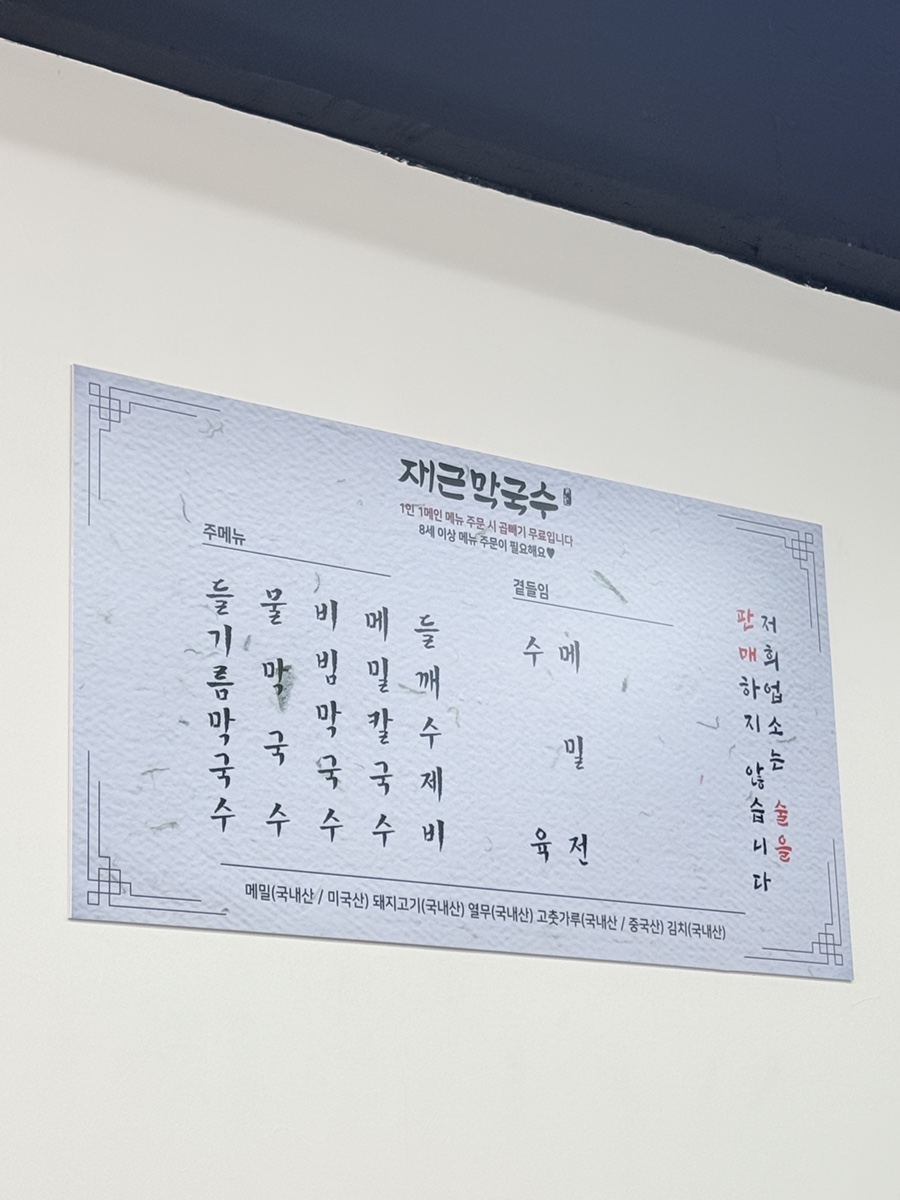 재근막국수
1인 1메인 메뉴 주문 시 곱빼기 무료입니다
8세 이상 메뉴 주문이 필요해요♥
주메뉴
들기름막국수
물막국수
비빔막국수
메밀칼국수
들깨수제비
곁들임
수육
메밀전
저희업소는 술을
판매하지 않습니다
메밀(국내산 / 미국산) 돼지고기(국내산) 열무(국내산) 고춧가루(국내산 / 중국산) 김치(국내산)